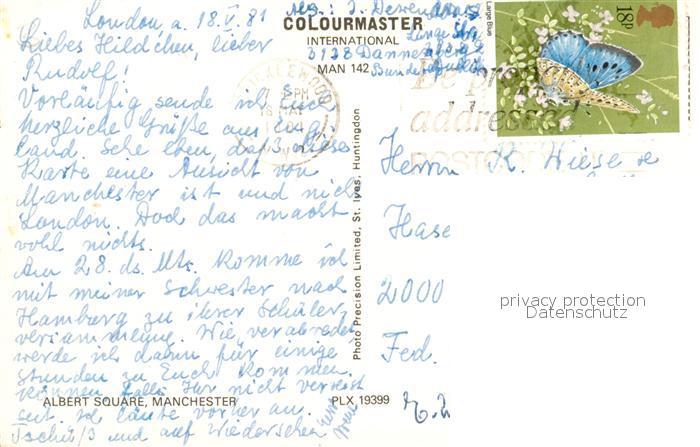 London, a. 18.V.81
Liebes Hildchen, lieber
Rudolf!
Vorläufig sende ich Euch
herzliche Grüße aus Eng-
land. Sehe eben, daß dieses
Karte eine Ansicht von
Manchester ist und nicht
London. Doch das macht
wohl nichts.
Am 28. ds. Mts. komme ich
mit meiner Schwester nach
Hamburg zu ihrer Schüler-
versammlung. Wie verabredet
werde ich dann für einige
Stunden zu Euch kommen
können, falls Ihr nicht verreist
seit. Ich läute vorher an.
Tschüß und auf Wiedersehen
ALBERT SQUARE, MANCHESTER
PLX 19399
COLOURMASTER
INTERNATIONAL
MAN 142
Photo Precision Limited, St. Ives, Huntingdon
Lange Str.
3138 Dannenberg
Bundesrepublik
Large Blue
18P
Be
address
Herrn K. Wiese
Hase
2000
Fed.
privacy protection
Datenschutz